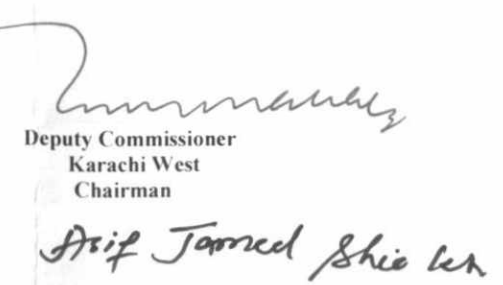 Deputy Commissioner
Karachi West
Chairman
Asif Jameel Shaikh